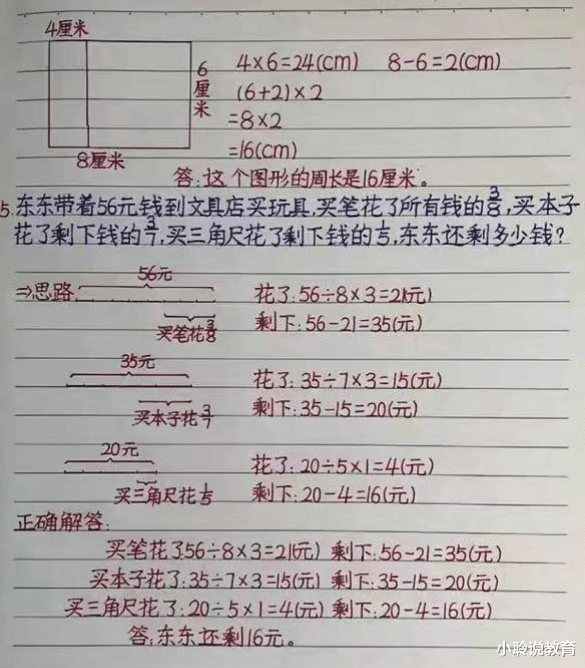 4厘米
4×6=24(cm) 8-6=2(cm)
6厘米
(6+2)×2
=8×2
8厘米
=16(cm)
答:这个图形的周长是16厘米。
5.东东带着56元钱到文具店买玩具,买笔花了所有钱的3/8,买本子
花了剩下钱的3/7,买三角尺花了剩下钱的1/5,东东还剩多少钱?
56元
⇒思路 花了:56÷8×3=21(元)
买笔花3/8 剩下:56-21=35(元)
35元
花了:35÷7×3=15(元)
买本子花3/7 剩下:35-15=20(元)
20元
花了:20÷5×1=4(元)
买三角尺花1/5 剩下:20-4=16(元)
正确解答:
买笔花了:56÷8×3=21(元) 剩下:56-21=35(元)
买本子花了:35÷7×3=15(元) 剩下:35-15=20(元)
买三角尺花了:20÷5×1=4(元) 剩下:20-4=16(元)
答:东东还剩16元。
小聆说教育